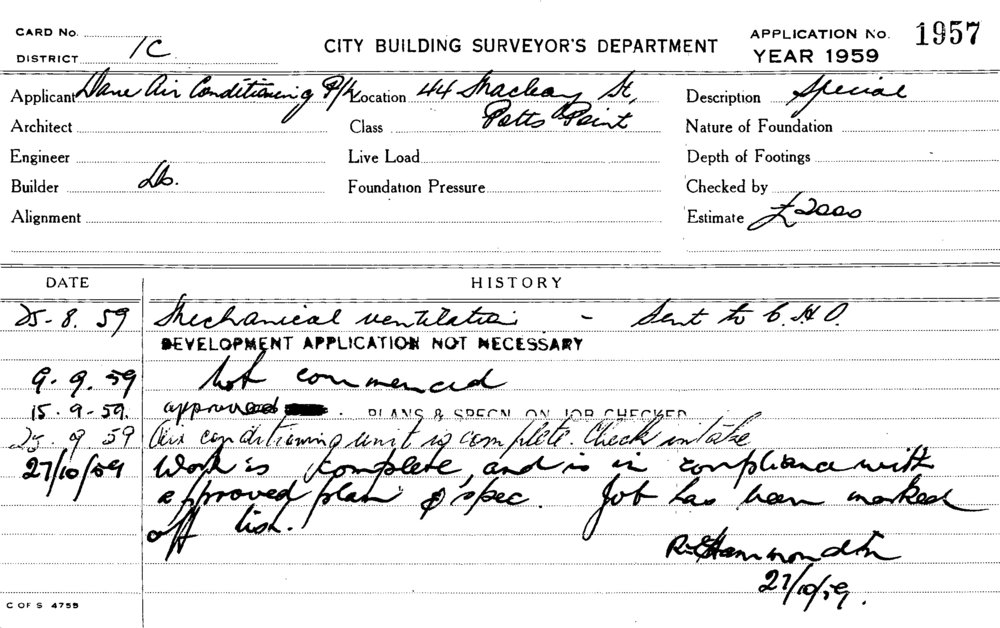 CARD No.
DISTRICT 1C
CITY BUILDING SURVEYOR'S DEPARTMENT
APPLICATION No. 1957
YEAR 1959
Applicant Dane Air Conditioning P/L
Location 44 Macleay St,
Potts Point
Description Special
Architect
Class
Nature of Foundation
Engineer
Live Load
Depth of Footings
Builder Do.
Foundation Pressure
Checked by
Alignment
Estimate £2000
DATE HISTORY
25-8.59 Mechanical ventilation - Sent to C.H.O.
DEVELOPMENT APPLICATION NOT NECESSARY
9.9.59 Not commenced
15.9-59. approved . PLANS & SPECN ON JOB CHECKED
25 9 59 Air conditioning unit is complete. Check intake
27/10/59 Work is complete, and is in compliance with
approved plan & spec. Job has been marked
off list.
27/10/59.
C OF S 475B